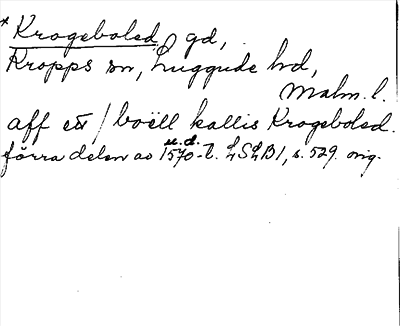 * Krogebolsd gd,
Kropps sn, Luggude hd,
Malm. l.
aff ett / boëll kallis Krogebolsd.
u.d.
förra delen av 1570-t. LSLB 1, s. 529. orig.